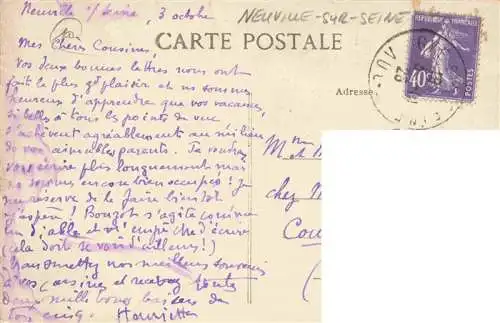 Neuville s/ Seine, 3 octobre
NEUVILLE-SUR-SEINE
CARTE POSTALE
Adresse
RÉPUBLIQUE FRANÇAISE
40c
POSTES
Mes Chers Cousins,
Vos deux bonnes lettres nous ont
fait le plus gd plaisir et ns sommes
heureux d'apprendre que vos vacances,
si belles à tous les points de vue
s'achèvent agréablement au milieu
de vos aimables parents. Je voudrais
vous écrire plus longuement mais
ns sommes encore bien occupés ! Je
me réserve de le faire bientôt
j'espère ! Bouzot s'agite comme
un diable et m'empêche d'écrire
(cela doit se voir d'ailleurs !)
Transmettez nos meilleurs souvenirs
à vos cousins et recevez
deux mille bons baisers de
Henriette
M
chez M
Cou